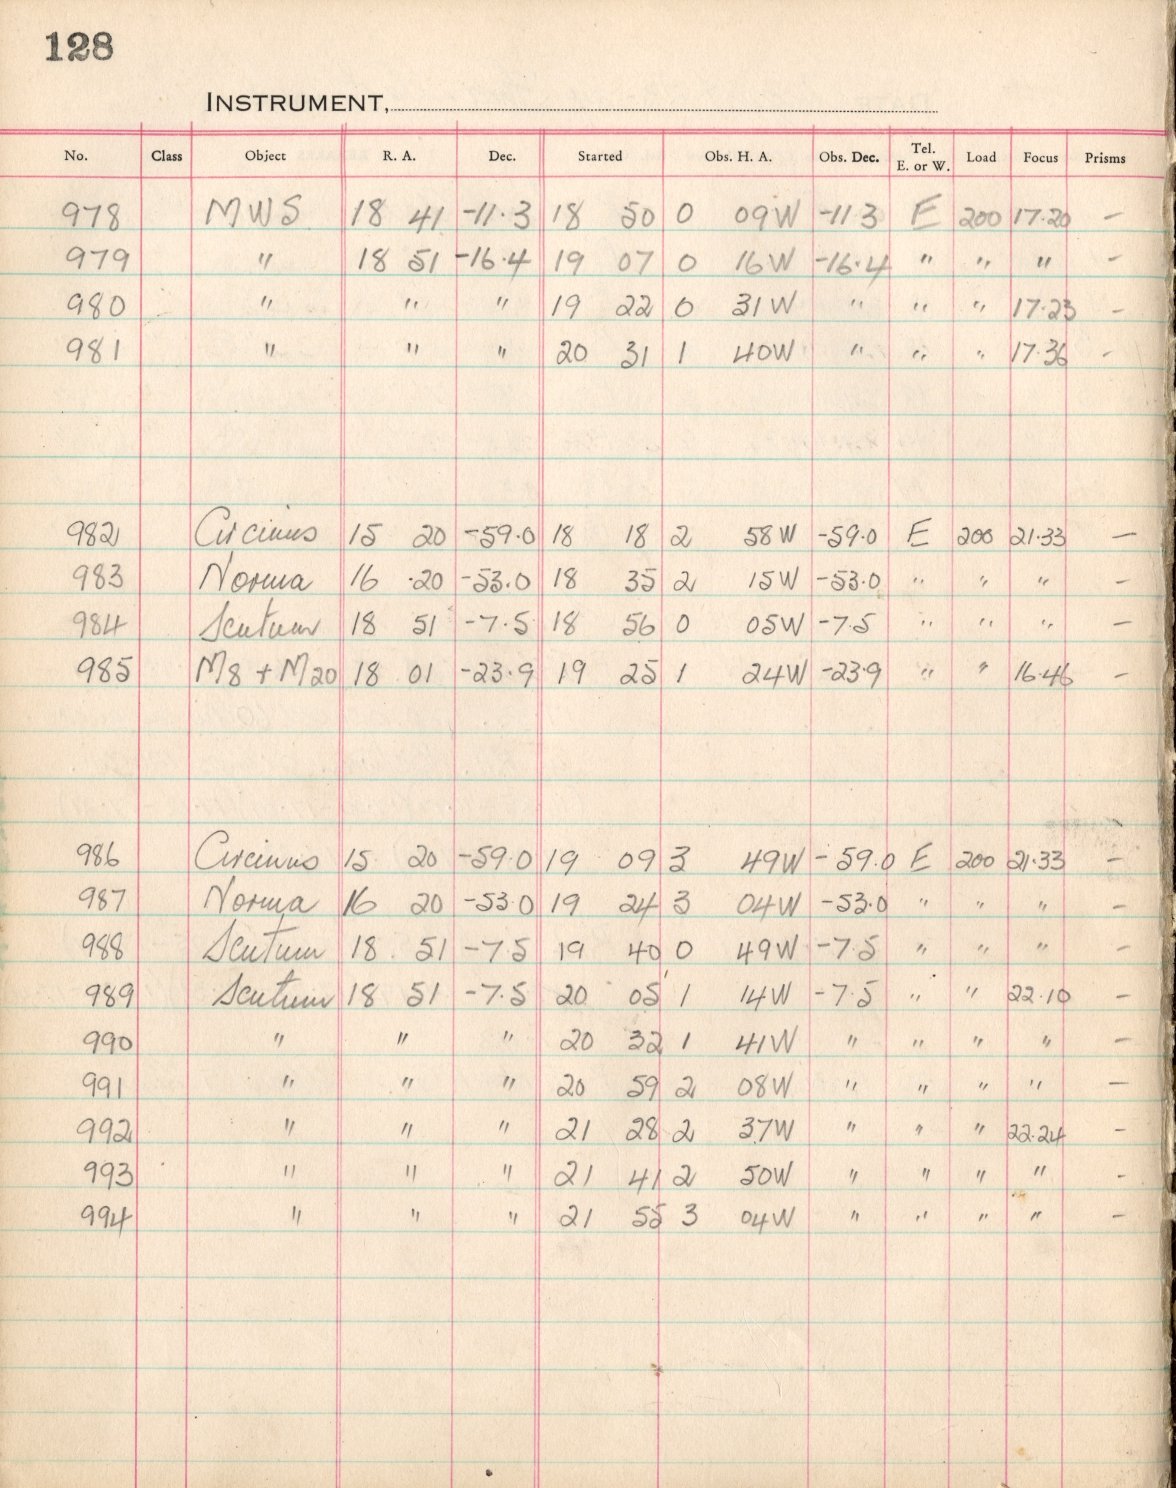 128
INSTRUMENT,
No. Class Object R. A. Dec. Started Obs. H. A. Obs. Dec. Tel. E. or W. Load Focus Prisms
978 MWS 18 41 -11.3 18 50 0 09W -11 3 E 200 17.20 -
979 " 18 51 -16.4 19 07 0 16W -16.4 " " " -
980 " " " 19 22 0 31W " " " 17.23 -
981 " " " 20 31 1 40W " " " 17.36 -
982 Circinus 15 20 -59.0 18 18 2 58W -59.0 E 200 21.33 -
983 Norma 16 20 -53.0 18 35 2 15W -53.0 " " " -
984 Scutum 18 51 -7.5 18 56 0 05W -7.5 " " " -
985 M8 + M20 18 01 -23.9 19 25 1 24W -23.9 " " 16.46 -
986 Circinus 15 20 -59.0 19 09 3 49W -59.0 E 200 21.33 -
987 Norma 16 20 -53.0 19 24 3 04W -53.0 " " " -
988 Scutum 18 51 -7.5 19 40 0 49W -7.5 " " " -
989 Scutum 18 51 -7.5 20 05 1 14W -7.5 " " 22.10 -
990 " " " 20 32 1 41W " " " " -
991 " " " 20 59 2 08W " " " " -
992 " " " 21 28 2 37W " " " 22.24 -
993 " " " 21 41 2 50W " " " " -
994 " " " 21 55 3 04W " " " " -